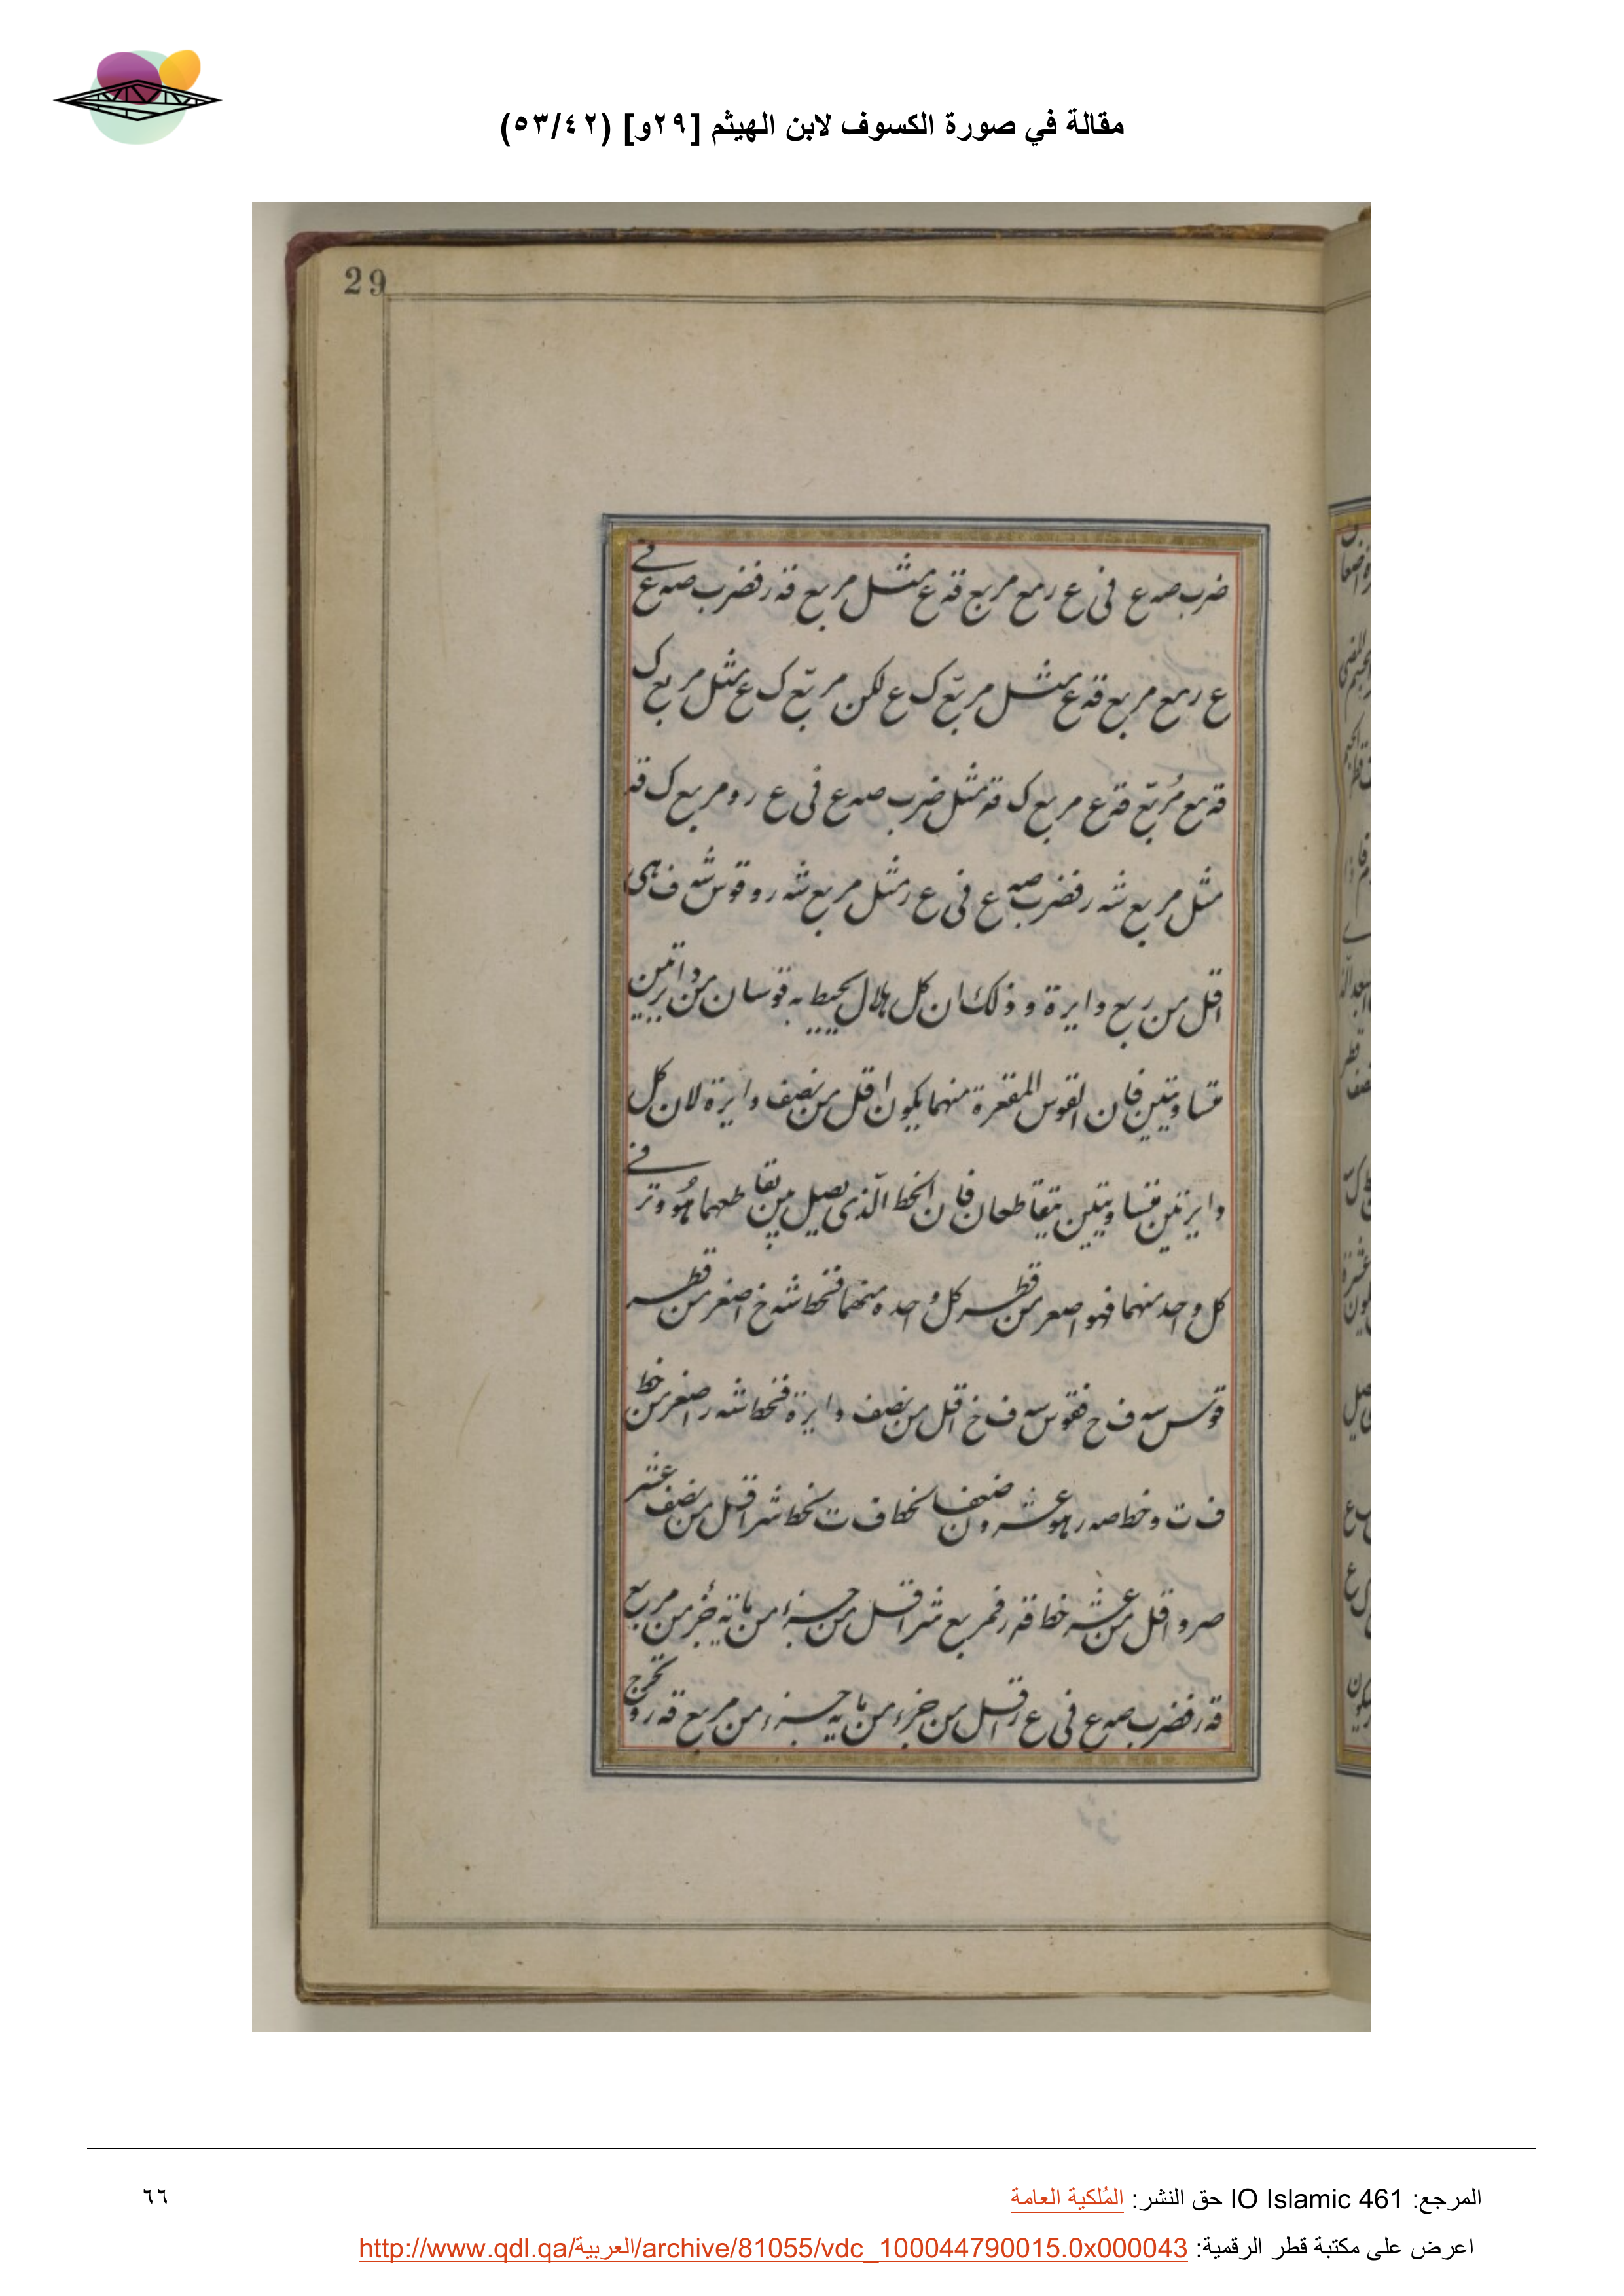 مقالة في صورة الكسوف لابن الهيثم [٢٩و] (٥٣/٤٢)
29
ضرب صه ع في ع ر مع مربع قه ع مثل مربع قه ر فضرب صه ع في
ع ر مع مربع قه ع مثل مربع ک ع لكن مربع ک ع مثل مربع ک
قه مع مربع قه ع مربع ک قه مثل ضرب صه ع في ع ر ومربع ک قه
مثل مربع شه ر فضرب صه ع في ع ر مثل مربع شه ر وقوس شه ف هي
اقل من ربع دايرة وذلك ان كل هلال يحيط به قوسان من دايرتين
متساويتين فان القوس المقعرة منهما يكون اقل من نصف دايرة لان كل
دايرتين متساويتين يتقاطعان فان الخط الذي يصل بين تقاطعهما هو وتر في
كل واحد منهما فهو اصغر من قطر كل واحده منهما فخط شه خ اصغر من قطر
قوس سه ف ح فقوس سه ف خ اقل من نصف دايرة فخط شه ر اصغر من خط
ف ت وخط صه ر هو عشرون ضعفا لخط ف ت فخط شر اقل من نصف عشر
صر واقل من عشر خط قه ر فمربع شر اقل من جزء من مائة جزء من مربع
قه ر فضرب صه ع في ع ر اقل من جزء من مايه جزء من مربع قه ر ونخرج
المرجع: IO Islamic 461 حق النشر: المُلكية العامة
٦٦
اعرض على مكتبة قطر الرقمية: http://www.qdl.qa/العربية/archive/81055/vdc_100044790015.0x000043